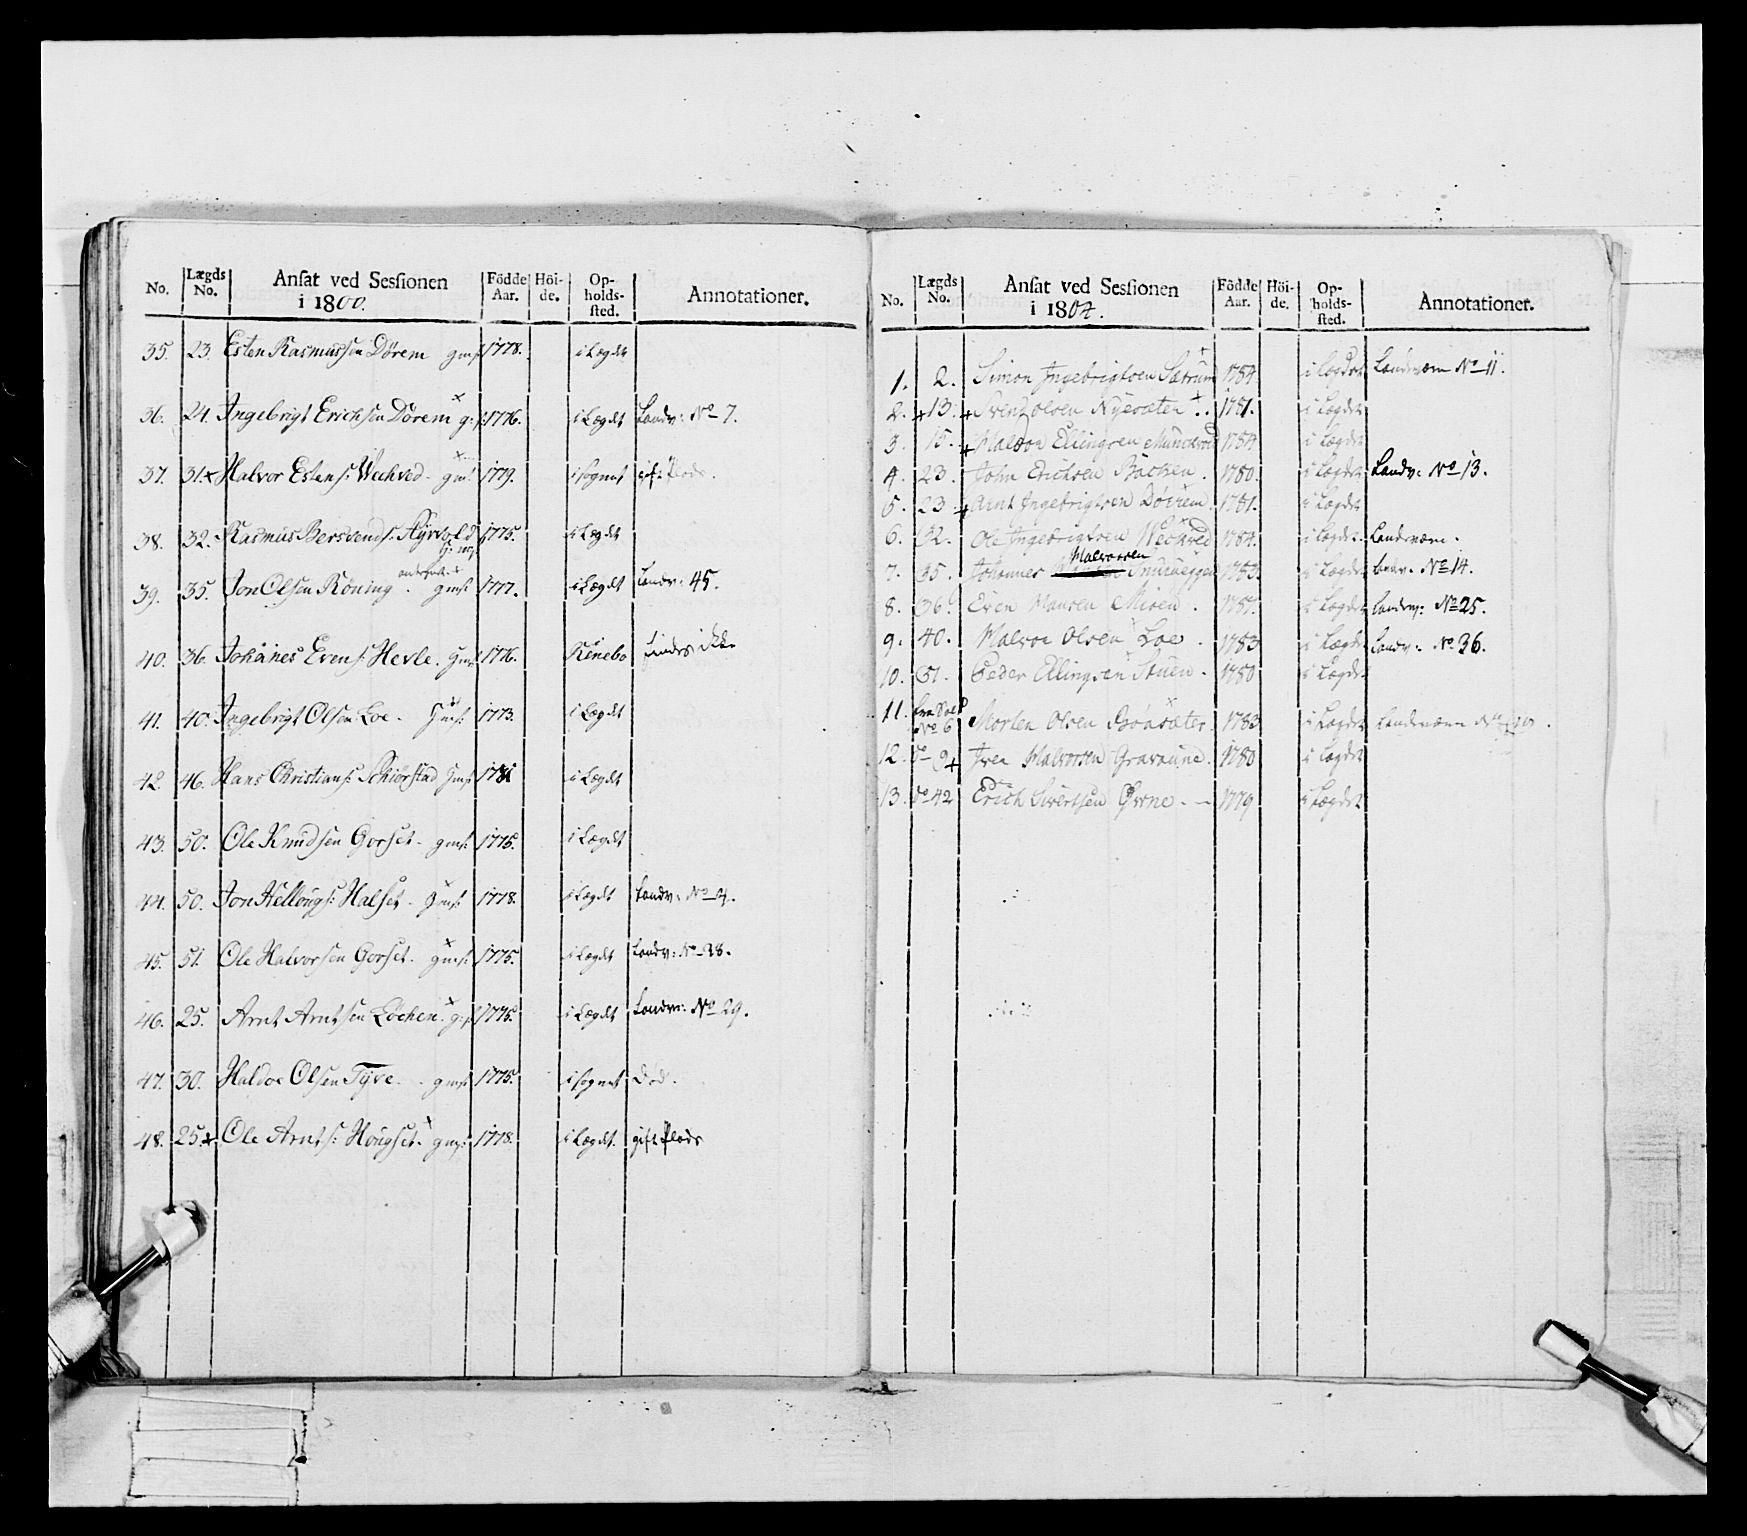 No. Lægds No. Ansat ved Sessionen i 1800. Födde Aar. Höide. Opholdssted. Annotationer.
35. 23. Esten Rasmussen Dörem gms: 1778. i Lægdet
36. 24. Ingebrigt Erichsen Dörem g: 1776. i Lægdet Landv: No 7.
37. 31.+ Halvor Estens: Wechved. gms: 1779. i sognet gift Plads.
38. 32. Rasmus Bersvends: 1775. i Lægdet
39. 35. Jon Olsen Röning. gms: 1777. i Lægdet Landv: 45.
40. 36. Johanes Evens: Hevle. gms: 1776. findes ikke
41. 40. Ingebrigt Olsen Loe. gms: 1773. i Lægdet
42. 46. Hans Christians: Schiörstad gms: i Lægdet
43. 50. Ole Knudsen Gorset. gms: 1775. i Lægdet
44. 50. Jon Hellougs: Halset. gms: 1778. i Lægdet Landv: No 4.
45. 51. Ole Halvorsen Gorset. gms: 1775. i Lægdet Landv: No 28.
46. 25. Arnt Arntsen Löchen. g: 1775. i Lægdet Landv: No 29.
47. 30. Haldoe Olsen Tyve. gms: 1775. i sognet Död.
48. 25+ Ole Arnts: Hougset. gms: 1778. i Lægdet. gift Plads
No. Lægds No. Ansat ved Sessionen i 1804. Födde Aar. Höide. Opholdssted. Annotationer.
1. 2. Simon Ingebrigtsen Sætrum 1784 i Lægdet Landværn No 11.
2. +13. + Svend Olsen Nyesæter 1781. i Lægdet
3. 15. + Haldoe Ellingsen 1784 i Lægdet
4. 23. John Erichsen Backen. 1780. i Lægdet Landv: No 13.
5. 23. + Arnt Ingebrigtsen Dörrem. 1781. i Lægdet
6. 32. Ole Ingebrigtsen Wechved 1784. i Lægdet. Landværn.
Halvorsen
7. 35. Johannes 1783. i Lægdet Landv. No 14.
8. 36. Even Hansen Misen. 1787. i Lægdet Landv: No 25.
9. 40. Halvor Olsen Loe. 1783 i Lægdet Landv: No 36.
10. 51. Peder Ellingsen Stuen. 1780 i Lægdet
11. No 6 Morten Olsen 1783 i Lægdet Landværn No
12. do 9+ Iver Halvorsen Gravaune. 1780 i Lægdet
13. do 42 Erich Sivertsen Övrne. 1779 i Lægdet